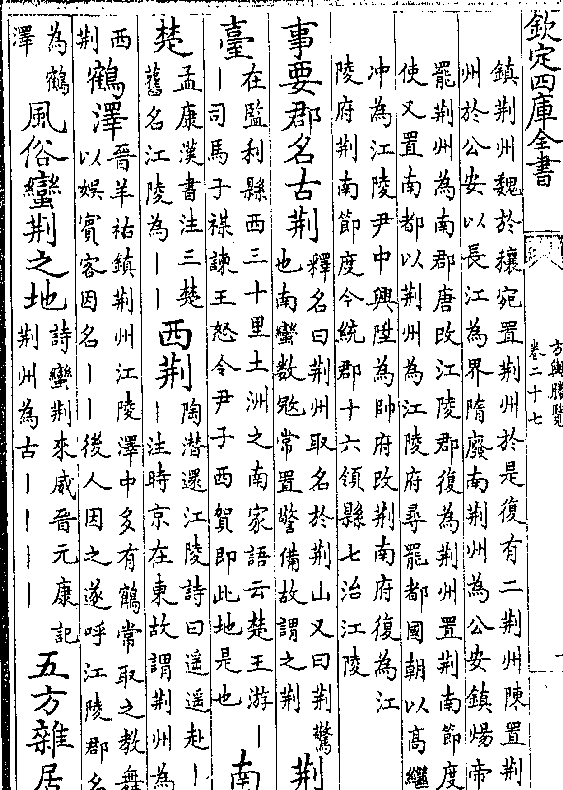 欽定四庫全書
方輿勝覽
卷二十七
鎮荆州魏於穰宛置荆州於是復有二荆州陳置荆
州於公安以長江為界隋廢南荆州為公安鎮煬帝
罷荆州為南郡唐改江陵郡復為荆州置荆南節度
使又置南都以荆州為江陵府尋罷都國朝以高繼
冲為江陵尹中興陞為帥府改荆南府復為江
陵府荆南節度今統郡十六領縣七治江陵
事要郡名古荆釋名曰荆州取名於荆山又曰荆驚也南蠻數叛常置警備故謂之荆荆
臺在監利縣西三十里土洲之南家語云楚王游｜｜司馬子祺諫王怒令尹子西賀即此地是也南
楚孟康漢書注三楚舊名江陵為｜｜西荆陶潛還江陵詩曰遥遥赴｜｜注時京在東故謂荆州為
西荆鶴澤晉羊祜鎮荆州江陵澤中多有鶴常取之教舞以娱賓客因名｜｜後人因之遂呼江陵郡名
為鶴澤風俗蠻荆之地詩蠻荆來威晉元康記荆州為古｜｜｜｜五方雜居